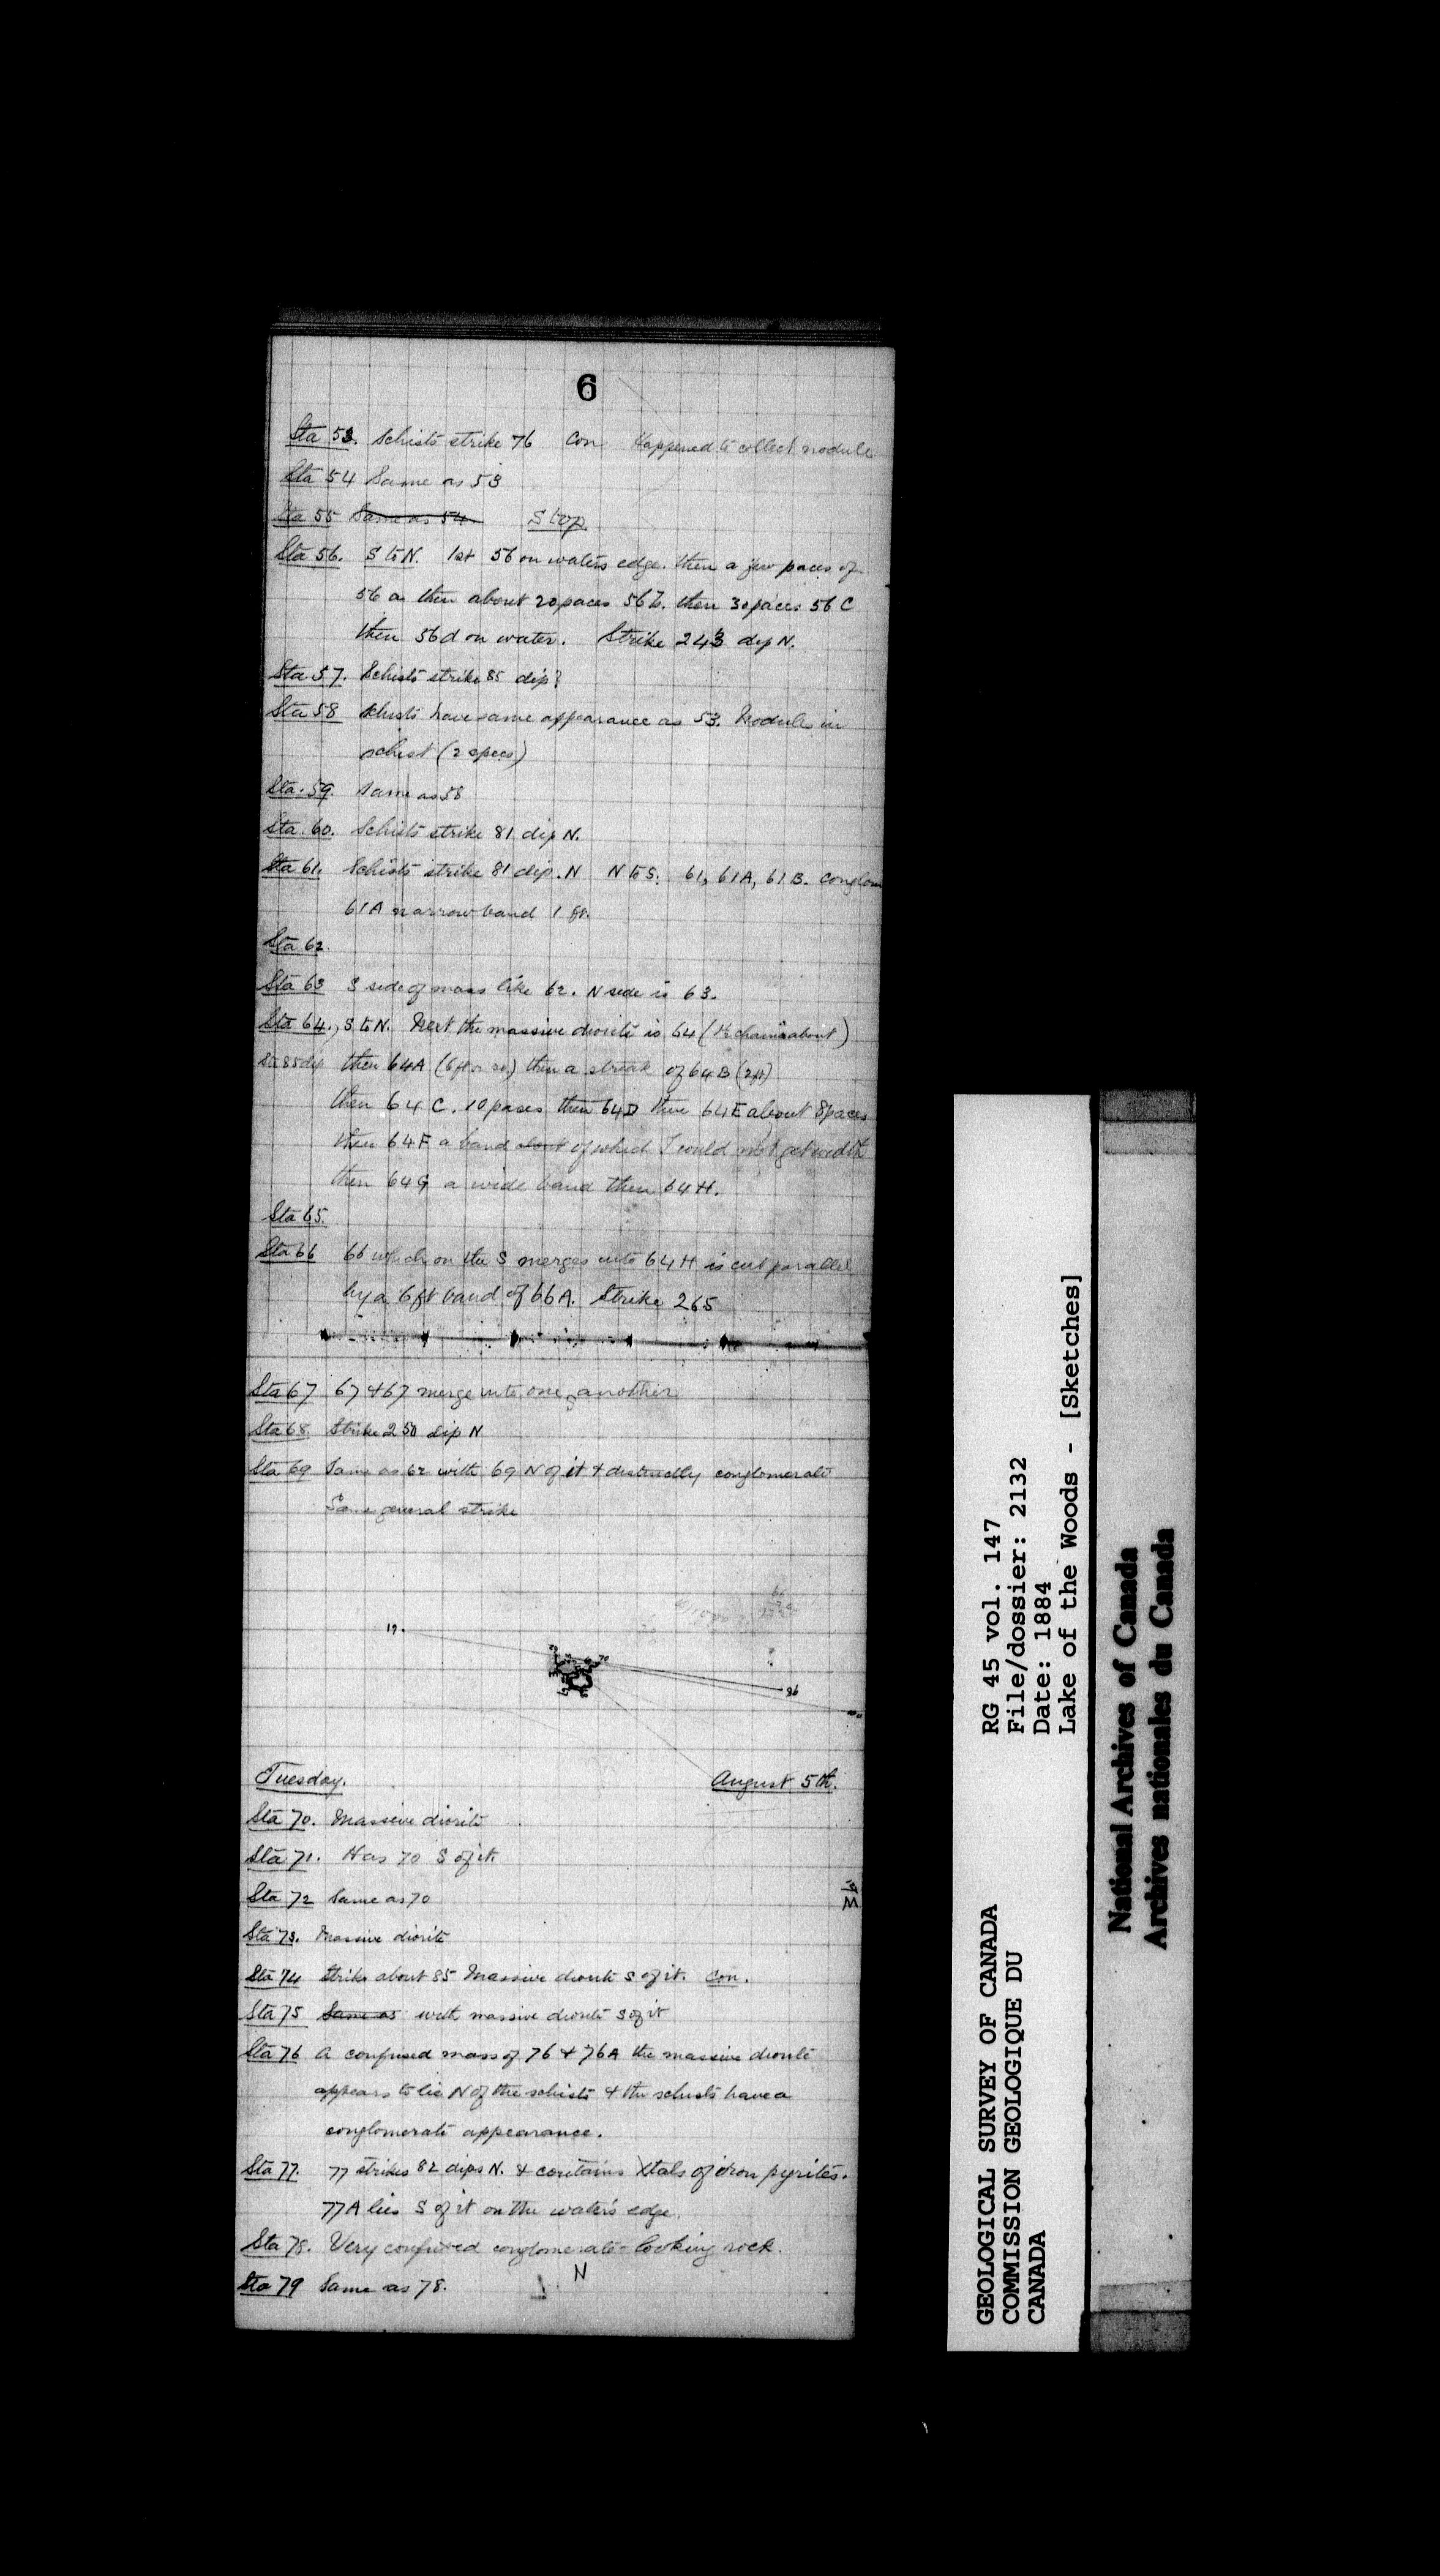 6
Sta 53. Schists strike 76 Con Happened to collect nodule
Sta 54 Same as 53
Sta 55 Same as 54 Stop
Sta 56. S to N. 1st 56 on waters edge. then a few paces of
56 a then about 20 paces 56 b. then 30 paces 56 C
then 56 d on water. Strike 243 dip N.
Sta 57. Schists strike 85 dip?
Sta 58 Schists have same appearance as 53. Nodules in
schist (2 specs)
Sta. 59. Same as 58
Sta. 60. Schists strike 81 dip N.
Sta 61. Schists strike 81 dip. N N to S. 61, 61A, 61B. Conglom
61A narrow band 1 ft.
Sta 62.
Sta 63 S side of mass like 62. N side is 63.
Sta 64., S to N. Next the massive diorite is 64 (1/2 chain about)
St 85 dip then 64A (6 ft or so) then a streak of 64B (2ft)
then 64 C. 10 paces then 64D then 64E about 8 paces
then 64F a band of which I could not get width
then 64G a wide band then 64H.
Sta 65.
Sta 66 66 which on the S merges into 64H is cut parallel
by a 6ft band of 66A. Strike 265
Sta 67 67 & 67 merge into one another
Sta 68. Strike 250 dip N
Sta 69 Same as 62 with 69 N of it & distinctly conglomerate
Same general strike
19.
70
86
Tuesday. August 5th.
Sta 70. Massive diorite
Sta 71. Has 70 S of it.
Sta 72 Same as 70
Sta 73. Massive diorite
Sta 74 Strike about 85 Massive diorite S of it. Con.
Sta 75 Same as with massive diorite S of it
Sta 76 A confused mass of 76 & 76A the massive diorite
appears to lie N of the schists & the schists have a
conglomerate appearance.
Sta 77. 77 strikes 82 dips N. & contains Xtals of iron pyrites.
77A lies S of it on the water's edge.
Sta 78. Very confused conglomerate-looking rock.
Sta 79 Same as 78. N
GEOLOGICAL SURVEY OF CANADA
COMMISSION GEOLOGIQUE DU
CANADA
RG 45 vol. 147
File/dossier: 2132
Date: 1884
Lake of the Woods - [Sketches]
National Archives of Canada
Archives nationales du Canada